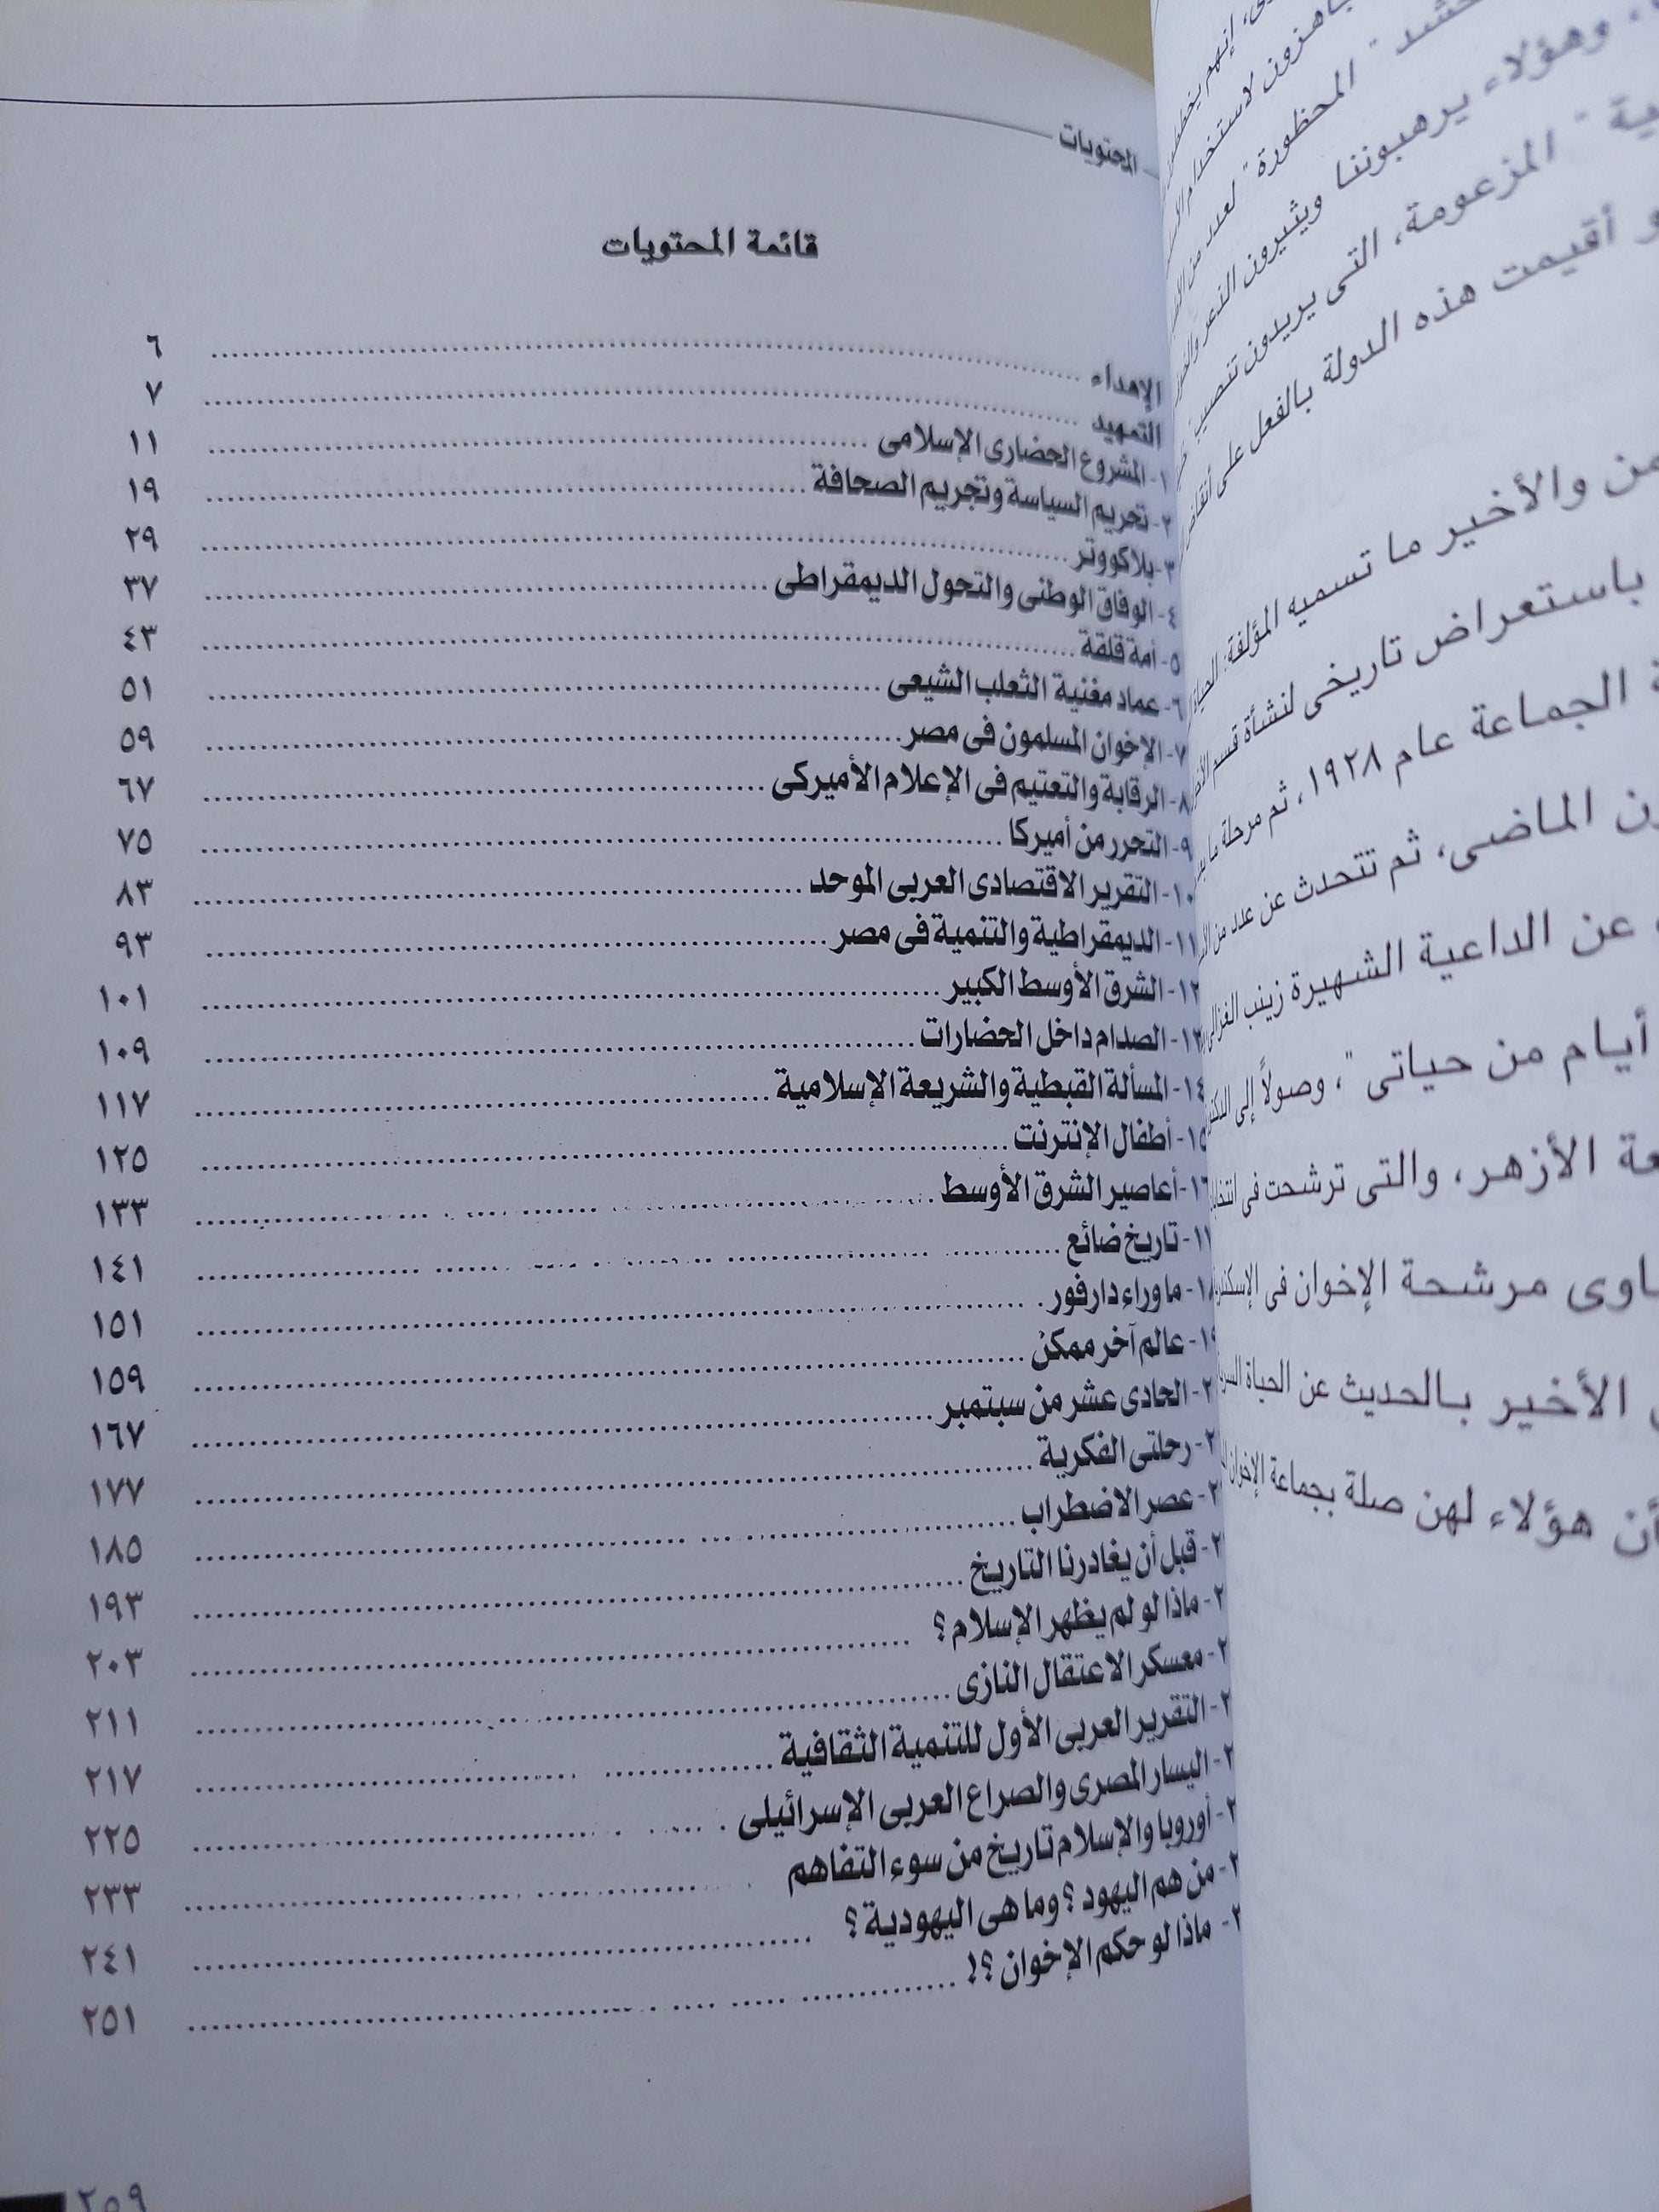 المحتويات
قائمة المحتويات
الإهداء ٦
التمهيد ٧
١- المشروع الحضارى الإسلامى ١١
٢- تحريم السياسة وتجريم الصحافة ١٩
٣- بلاكووتر ٢٩
٤- الوفاق الوطنى والتحول الديمقراطى ٣٧
٥- أمة قلقة ٤٣
٦- عماد مغنية الثعلب الشيعى ٥١
٧- الإخوان المسلمون فى مصر ٥٩
٨- الرقابة والتعتيم فى الإعلام الأميركى ٦٧
٩- التحرر من أميركا ٧٥
١٠- التقرير الاقتصادى العربى الموحد ٨٣
١١- الديمقراطية والتنمية فى مصر ٩٣
١٢- الشرق الأوسط الكبير ١٠١
١٣- الصدام داخل الحضارات ١٠٩
١٤- المسألة القبطية والشريعة الإسلامية ١١٧
١٥- أطفال الإنترنت ١٢٥
١٦- أعاصير الشرق الأوسط ١٣٣
١٧- تاريخ ضائع ١٤١
١٨- ما وراء دارفور ١٥١
١٩- عالم آخر ممكن ١٥٩
٢- الحادى عشر من سبتمبر ١٦٧
٢- رحلتى الفكرية ١٧٧
٢- عصر الاضطراب ١٨٥
٢- قبل أن يغادرنا التاريخ ١٩٣
٢- ماذا لو لم يظهر الإسلام ؟ ٢٠٣
٢- معسكر الاعتقال النازى ٢١١
٢- التقرير العربى الأول للتنمية الثقافية ٢١٧
٢- اليسار المصرى والصراع العربى الإسرائيلى ٢٢٥
٢- أوروبا والإسلام تاريخ من سوء التفاهم ٢٣٣
٢- من هم اليهود ؟ وما هى اليهودية ؟ ٢٤١
٣- ماذا لو حكم الإخوان ؟! ٢٥١
٢٥٩
إنهم يخططو
لاستخدام
" المحظورة " لعدد من
وهؤلاء يرهبوننا ويثيرون الذعر
" المزعومة، التى يريدون تنصيب
أقيمت هذه الدولة بالفعل على أنقاض
والأخير ما تسميه المؤلفة: الحياة
باستعراض تاريخى لنشأة قسم
الجماعة عام ١٩٢٨، ثم مرحلة ما بعد
الماضى، ثم تتحدث عن عدد من
عن الداعية الشهيرة زينب الغزالى
أيام من حياتى "، وصولاً إلى
الأزهر، والتى ترشحت فى
مرشحة الإخوان فى
الأخير بالحديث عن الحياة
أن هؤلاء لهن صلة بجماعة الإخوان